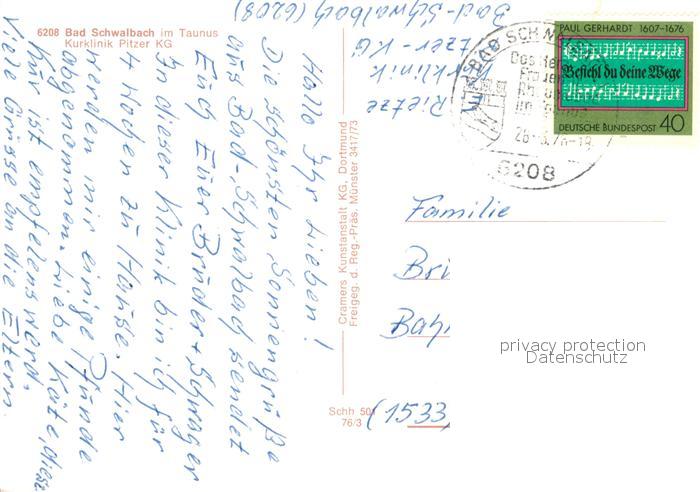 6208 Bad Schwalbach im Taunus
Kurklinik Pitzer KG
Hallo Ihr Lieben!
Die schönsten Sonnengrüße
aus Bad-Schwalbach sendet
Euch Euer Bruder + Schwager
In dieser Klinik bin ich für
4 Wochen zu Hause. Hier
werden mir einige Pfunde
abgenommen. Liebe Käte, diese
Kur ist empfelenswerd.
Viele Grüsse an die Eltern.
Cramers Kunstanstalt KG, Dortmund
Freigeg. d. Reg.-Präs. Münster 3411/73
Schh 501
76/3
Kurklinik
Bad-Schwalbach (6208)
BAD SCHWALBACH
6208
PAUL GERHARDT 1607-1676
Befiehl du deine Wege
DEUTSCHE BUNDESPOST 40
Familie
Bri
Bah
(1533)
privacy protection
Datenschutz